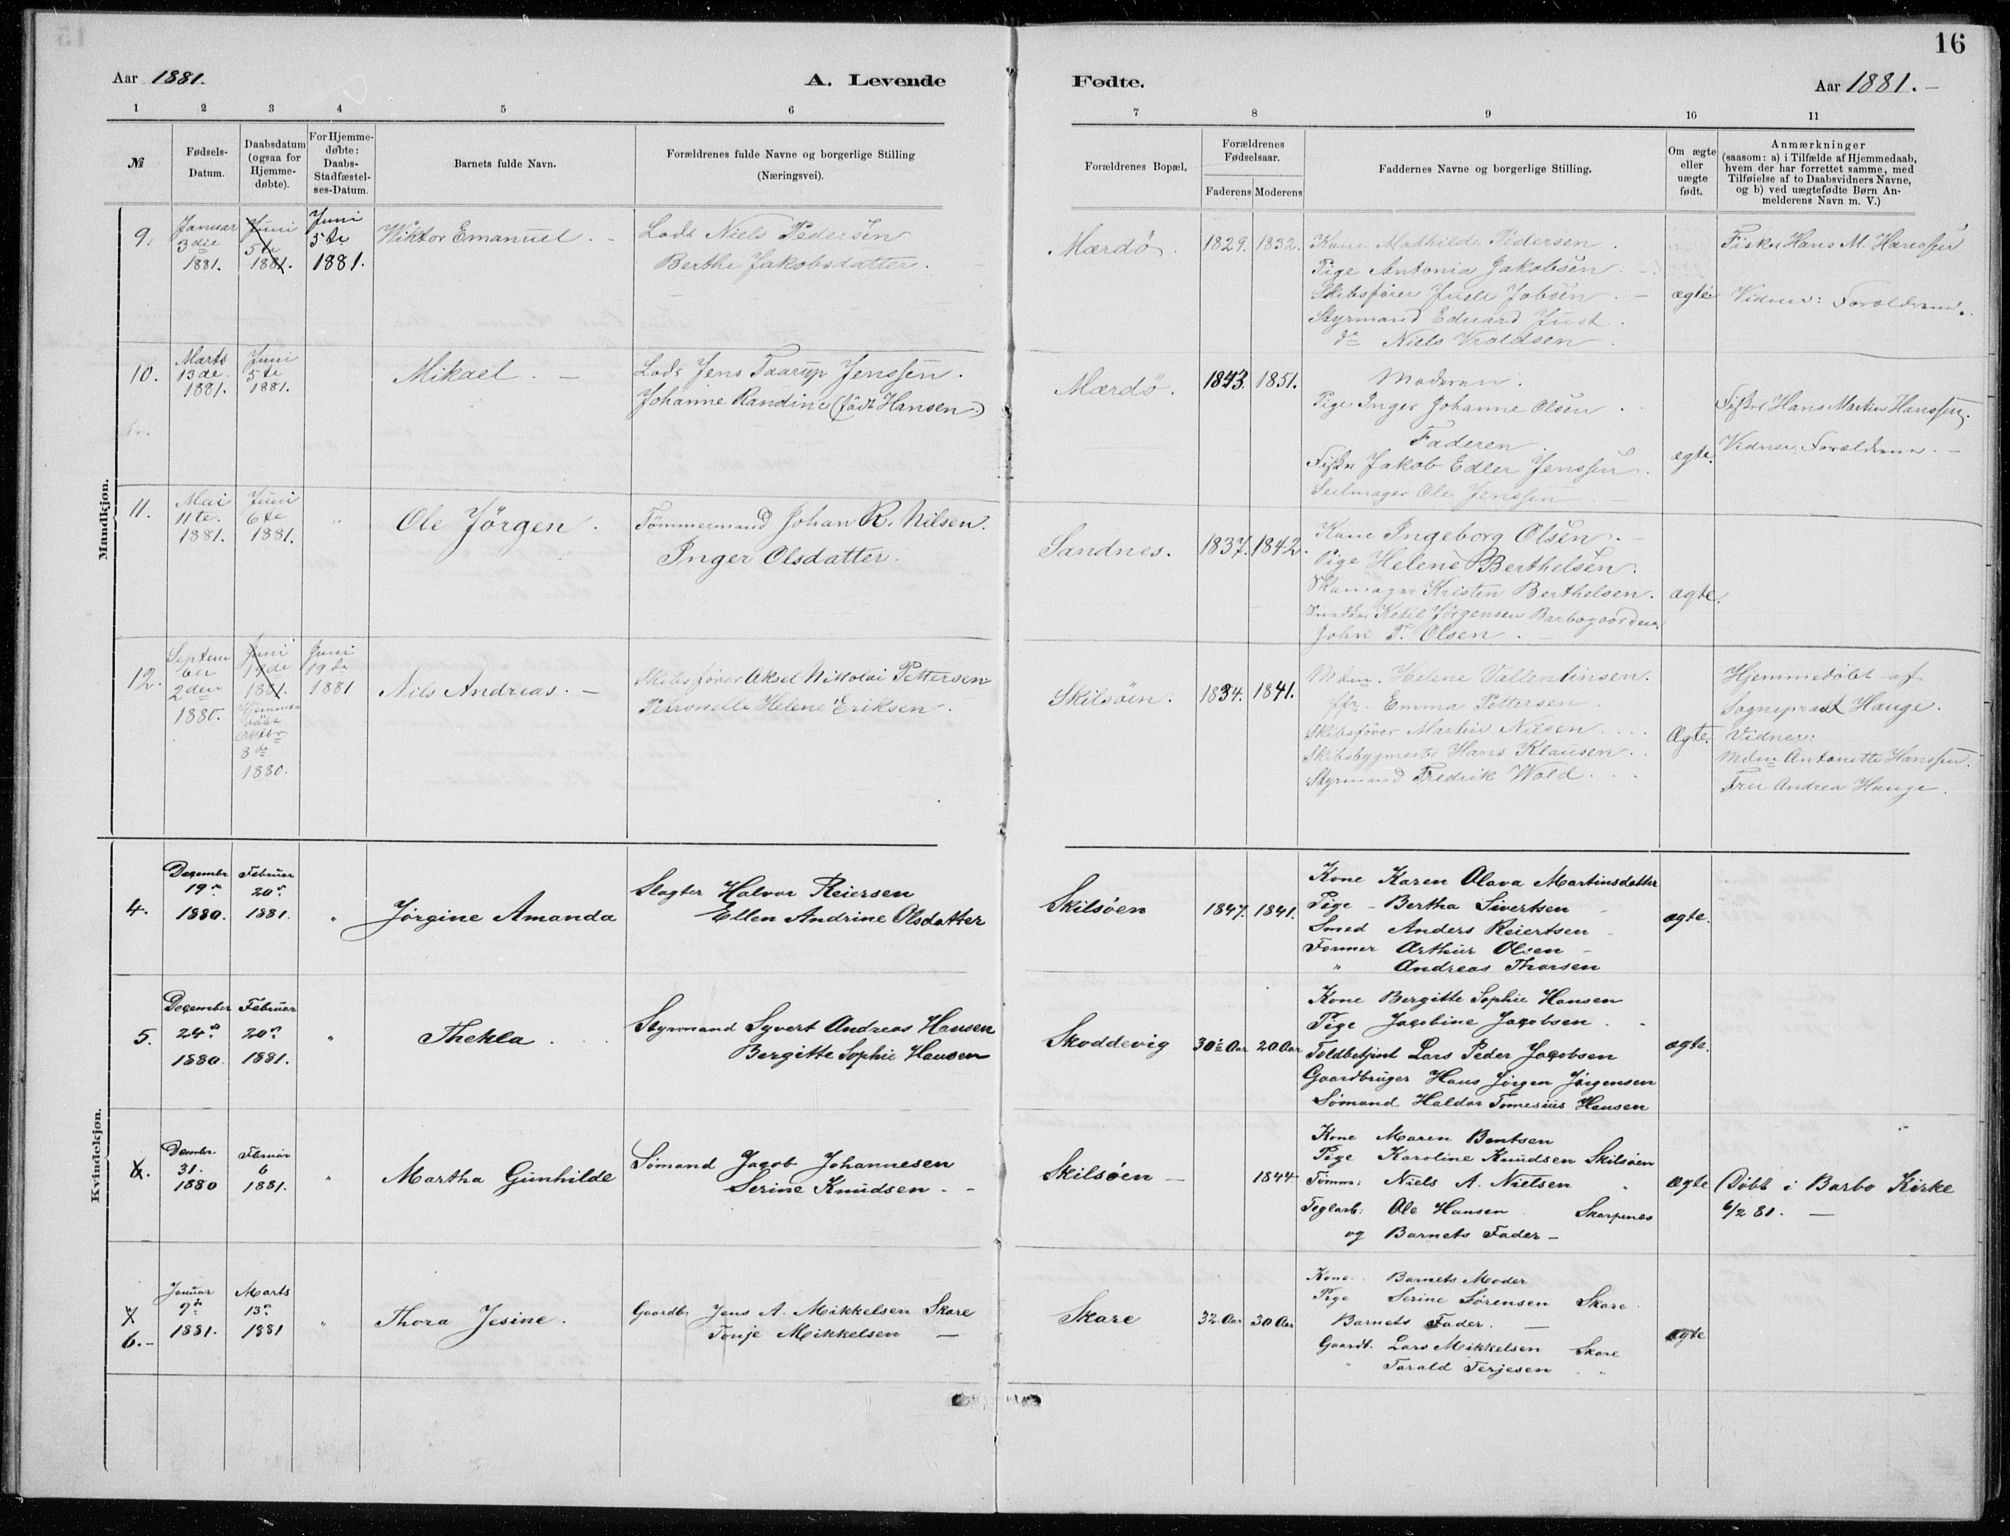 16
Aar 1881.
A. Levende Fødte.
Aar 1881. –
1 2 3 4 5 6 7 8 9 10 11
№
Fødsels-
Datum.
Daabsdatum
(ogsaa for
Hjemme-
døbte).
For Hjemme-
døbte:
Daabs-
Stadfæstel-
ses-Datum.
Barnets fulde Navn.
Forældrenes fulde Navne og borgerlige Stilling
(Næringsvei).
Forældrenes Bopæl.
Forældrenes
Fødselsaar.
Faderens Moderens
Faddernes Navne og borgerlige Stilling.
Om ægte
eller
uægte
født.
Anmærkninger
(saasom: a) i Tilfælde af Hjemmedaab,
hvem der har forrettet samme, med
Tilføielse af to Daabsvidners Navne,
og b) ved uægtefødte Børn An-
melderens Navn m. V.)
Mandkjøn.
9.
Januar
3die
1881.
Juni
5te
1881.
Juni
5te
1881.
Wiktor Emanuel
Lods Niels Pedersen
Berthe Jakobsdatter.
Mærdö.
1829. 1832.
Kone Mathilde Pedersen
Pige Antonia Jakobsen
Skibsfører Juell Jobsen
Styrmand Eduard Just
do Niels Vroldsen
ægte
Fisker Hans M. Hanssen
Vidner: Forældrene.
10.
Marts
13de
1881.
Juni
5te
1881.
Mikael. –
Lods Jens Taarup Jenssen.
Johanne Randine (født Hansen.)
Mærdö.
1843. 1851.
Moderen.
Pige Inger Johanne Olsen
Faderen.
Fisker Jakob Edler Jenssen.
Seilmager Ole Jenssen
ægte.
Fisker Hans Martin Hanssen.
Vidner. Forældrene. –
11.
Mai
11te.
1881.
Juni
6te
1881.
"
Ole Jörgen.
Tømmermand Johan R. Nilsen.
Inger Olsdatter.
Sandnes.
1837. 1842.
Kone Ingeborg Olsen.
Pige Helene Berthelsen.
Skomager Kristen Berthelsen.
Ketil Jørgensen Barbogaarden.
John T. Olsen.
ægte.
12.
Septem
ber
2den
1880.
Juni
19de
1881.
Hjemme-
döbt
Oktbr
3de
1880.
Juni
19de
1881
Nils Andreas. –
Skibsfører Aksel Nikolai Pettersen
Petronelle Helene Eriksen.
Skilsöen.
1834. 1841.
Mdm. Helene Vallentinsen.
Emma Pettersen
Skibsfører Martin Nilsen
Skibsbygmester Hans Klausen
Styrmand Fredrik Wold
Ægte.
Hjemmedöbt af
Sognepræst Hauge.
Vidner:
Mdm Antonette Hanssen.
Fru Andrea Hauge.
Kvindekjøn.
4.
Decembr
19de
1880.
Februar
20de
1881.
"
Jørgine Amanda
Slagter Halvor Reiersen
Ellen Andrine Olsdatter
Skilsøen
1847. 1841.
Kone Karen Olava Martinsdatter
Pige – Bertha Sivertsen
Smed Anders Reiertsen
Former Arthur Olsen –
" Andreas Thorsen
ægte.
5.
December
24de
1880.
Februar
20de
1881.
"
Thekla
Styrmand Syvert Andreas Hansen
Bergitte Sophie Hansen
Skoddevig
30te Aar 20 Aar
Kone Bergitte Sophie Hansen
Pige Jacobine Jacobsen
Toldbetjent Lars Peder Jacobsen
Gaardbruger Hans Jørgen Jørgensen
Sømand Haldor Tomesius Hansen
ægte.
Dcember
31.
1880
Februar
6
1881.
"
Martha Gunhilde
Sømand Jacob Johannesen
Serine Knudsen. –
Skilsøen –
1844
Kone Maren Bentsen
Pige Karoline Knudsen Skilsøen
Tømm: Niels A. Nielsen "
Teglarb: Ole Hansen Skarpenæs
og Barnets Fader –
ægte
Døbt i Barbo Kirke
6/2 81. –
6. –
Januar
9de
1881.
Marts
13de
1881
"
Thora Jesine.
Gaardbr. Jens A. Mikkelsen Skare
Tonje Mikkelsen –
Skare
32 Aar 30 Aar
Kone. Barnets Moder
Pige Serine Sørensen Skare.
Barnets Fader. –
Gaardb. Lars Mikkelsen Skare
" Tarald Terjesen "
ægte